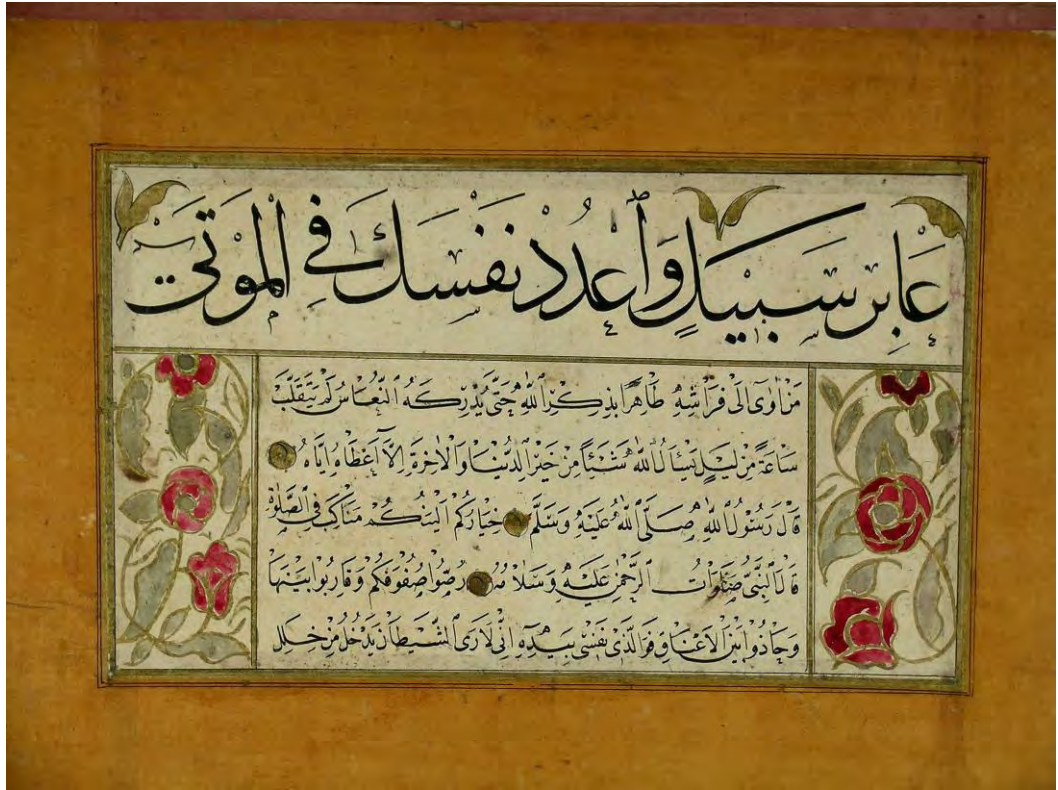 عَابِرُ سَبِيلٍ وَاعْدُدْ نَفْسَكَ فِي الْمَوْتَى
مَنْ اَوٰى اِلٰى فِرَاشِهِ طَاهِرًا بِذِكْرِ اللّٰهِ حَتّٰى يُدْرِكَهُ النُّعَاسُ لَمْ يَتَقَلَّبْ
سَاعَةً مِنْ لَيْلٍ يَسْأَلُ اللّٰهَ شَيْئًا مِنْ خَيْرِ الدُّنْيَا وَالْاٰخِرَةِ اِلَّا اَعْطَاهُ اِيَّاهُ
قَالَ رَسُولُ اللّٰهِ صَلَّى اللّٰهُ عَلَيْهِ وَسَلَّمَ خِيَارُكُمْ اَلْيَنُكُمْ مَنَاكِبَ فِي الصَّلٰوةِ
قَالَ النَّبِيُّ صَلَوَاتُ الرَّحْمٰنِ عَلَيْهِ وَسَلَامُهُ رُصُّوا صُفُوفَكُمْ وَقَارِبُوا بَيْنَهَا
وَحَاذُوا بَيْنَ الْاَعْنَاقِ فَوَالَّذِي نَفْسِي بِيَدِهِ اِنِّي لَاَرَى الشَّيْطَانَ يَدْخُلُ مِنْ خَلَلِ